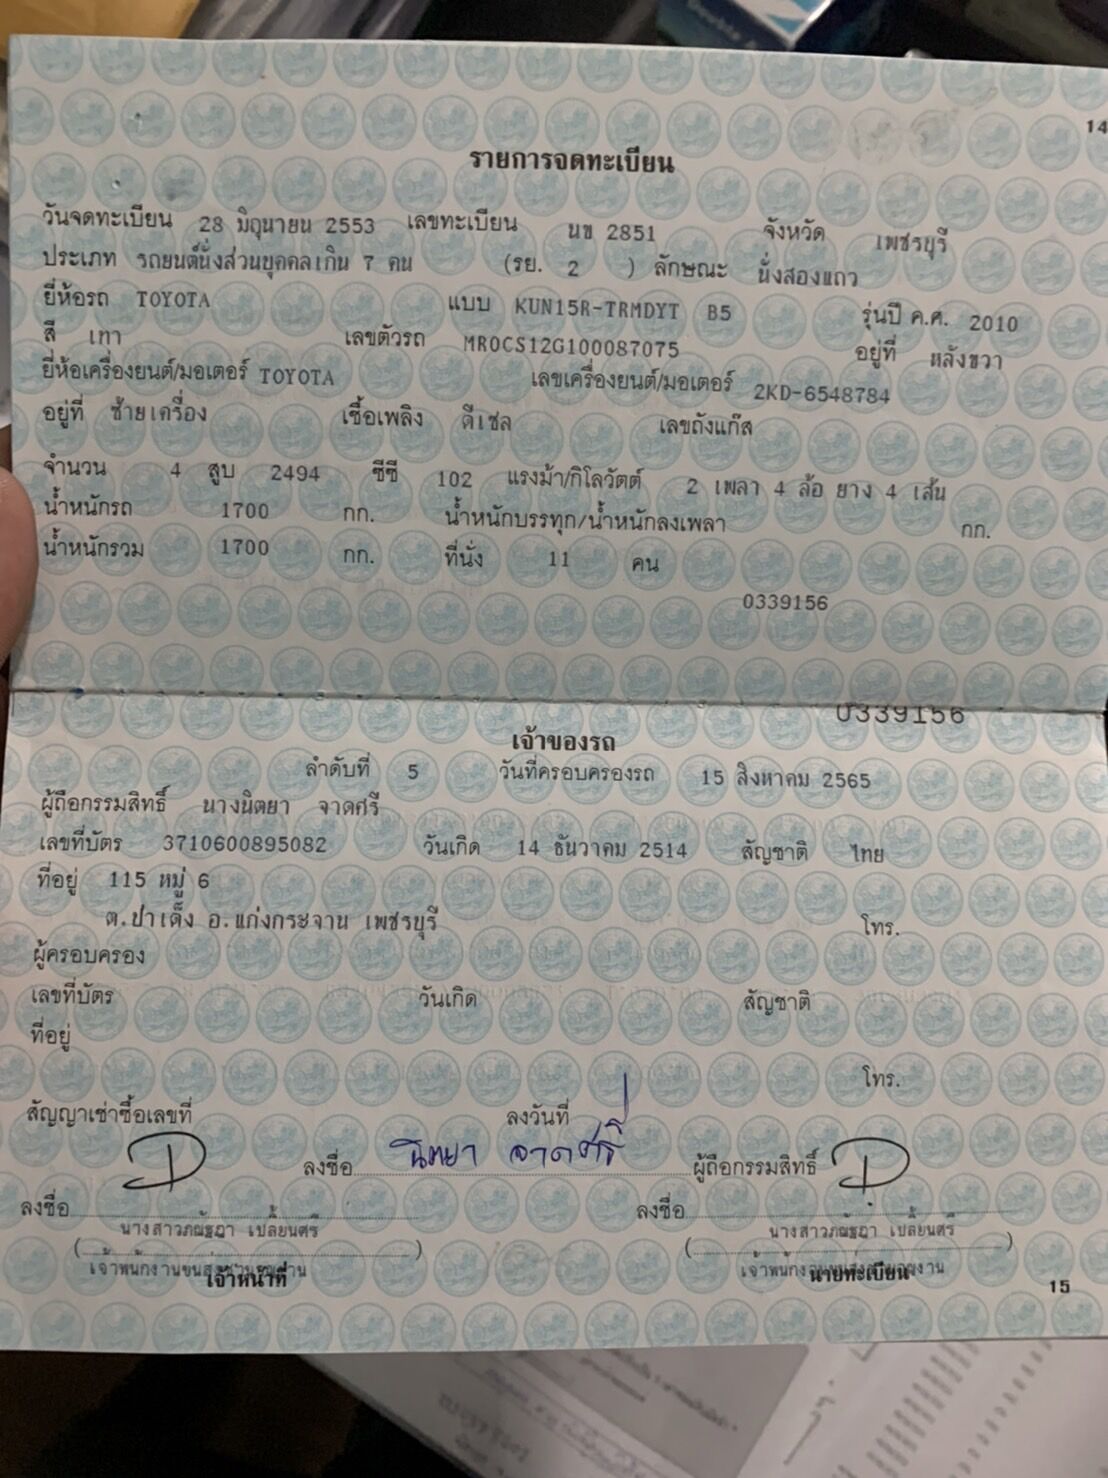 14
รายการจดทะเบียน
วันจดทะเบียน 28 มิถุนายน 2553 เลขทะเบียน นข 2851 จังหวัด เพชรบุรี
ประเภท รถยนต์นั่งส่วนบุคคลเกิน 7 คน (รย. 2 ) ลักษณะ นั่งสองแถว
ยี่ห้อรถ TOYOTA แบบ KUN15R-TRMDYT B5 รุ่นปี ค.ศ. 2010
สี เทา เลขตัวรถ MR0CS12G100087075 อยู่ที่ หลังขวา
ยี่ห้อเครื่องยนต์/มอเตอร์ TOYOTA เลขเครื่องยนต์/มอเตอร์ 2KD-6548784
อยู่ที่ ซ้ายเครื่อง เชื้อเพลิง ดีเซล เลขถังแก๊ส
จำนวน 4 สูบ 2494 ซีซี 102 แรงม้า/กิโลวัตต์ 2 เพลา 4 ล้อ ยาง 4 เส้น
น้ำหนักรถ 1700 กก. น้ำหนักบรรทุก/น้ำหนักลงเพลา กก.
น้ำหนักรวม 1700 กก. ที่นั่ง 11 คน
0339156
0339156
เจ้าของรถ
ลำดับที่ 5 วันที่ครอบครองรถ 15 สิงหาคม 2565
ผู้ถือกรรมสิทธิ์ นางนิตยา จาดศรี
เลขที่บัตร 3710600895082 วันเกิด 14 ธันวาคม 2514 สัญชาติ ไทย
ที่อยู่ 115 หมู่ 6
ต.ป่าเด็ง อ.แก่งกระจาน เพชรบุรี โทร.
ผู้ครอบครอง
เลขที่บัตร วันเกิด สัญชาติ
ที่อยู่
โทร.
สัญญาเช่าซื้อเลขที่ ลงวันที่
ลงชื่อ นิตยา จาดศรี ผู้ถือกรรมสิทธิ์
ลงชื่อ ลงชื่อ
นางสาวภณัฐฎา เปลี่ยนศรี นางสาวภณัฐฎา เปลี่ยนศรี
( ) ( )
เจ้าหน้าที่ นายทะเบียน
15